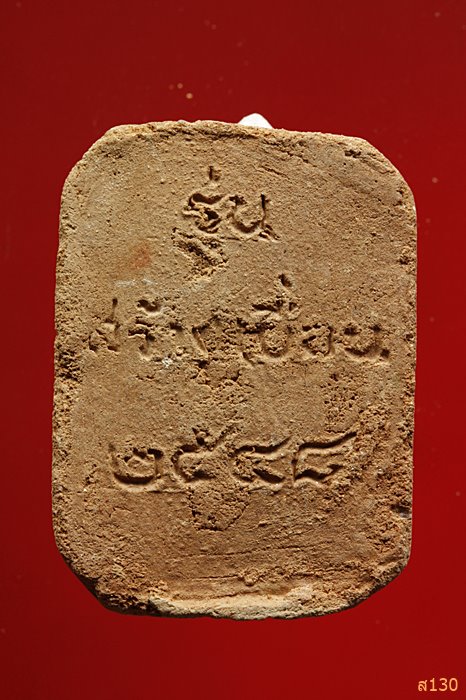 รุ่น
สร้างเขื่อน
๒๕๔๘
ส130